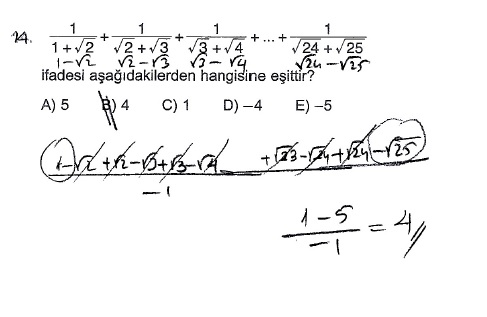 24. 1/(1+√2) + 1/(√2+√3) + 1/(√3+√4) + ... + 1/(√24+√25)
1-√2 √2-√3 √3-√4 √24-√25
ifadesi aşağıdakilerden hangisine eşittir?
A) 5 B) 4 C) 1 D) -4 E) -5
1-√2+√2-√3+√3-√4 +√23-√24+√24-√25
-1
(1-5)/(-1) = 4